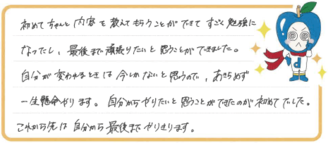 初めてちゃんと内容を教えてもらうことができて すごく勉強に
なったし、最後まで頑張りたいと思うことができました。
自分が変われるときは今しかないと思うので、あきらめず
一生懸命がります。自分からやりたいと思うことができたのが初めてでした。
これから先は自分から最後までがりきります。